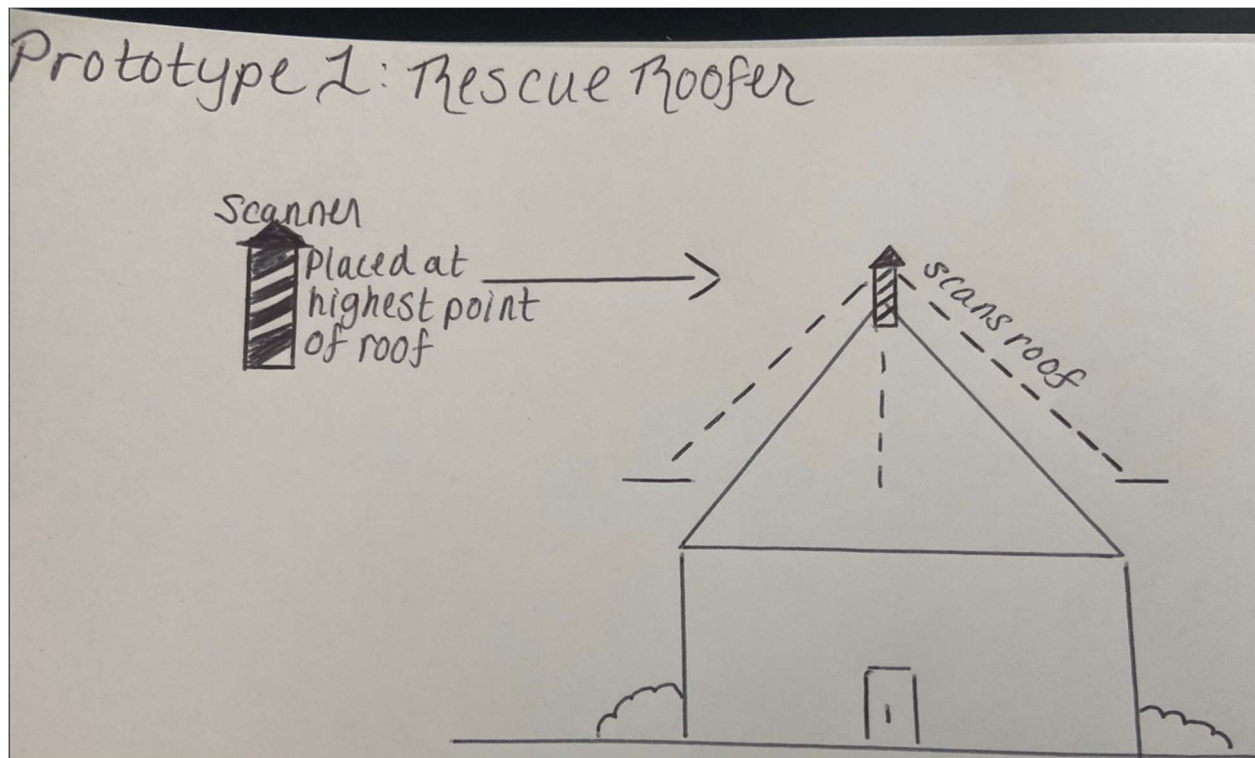 Prototype 1: Rescue Roofer
Scanner
Placed at
highest point
of roof
scans roof